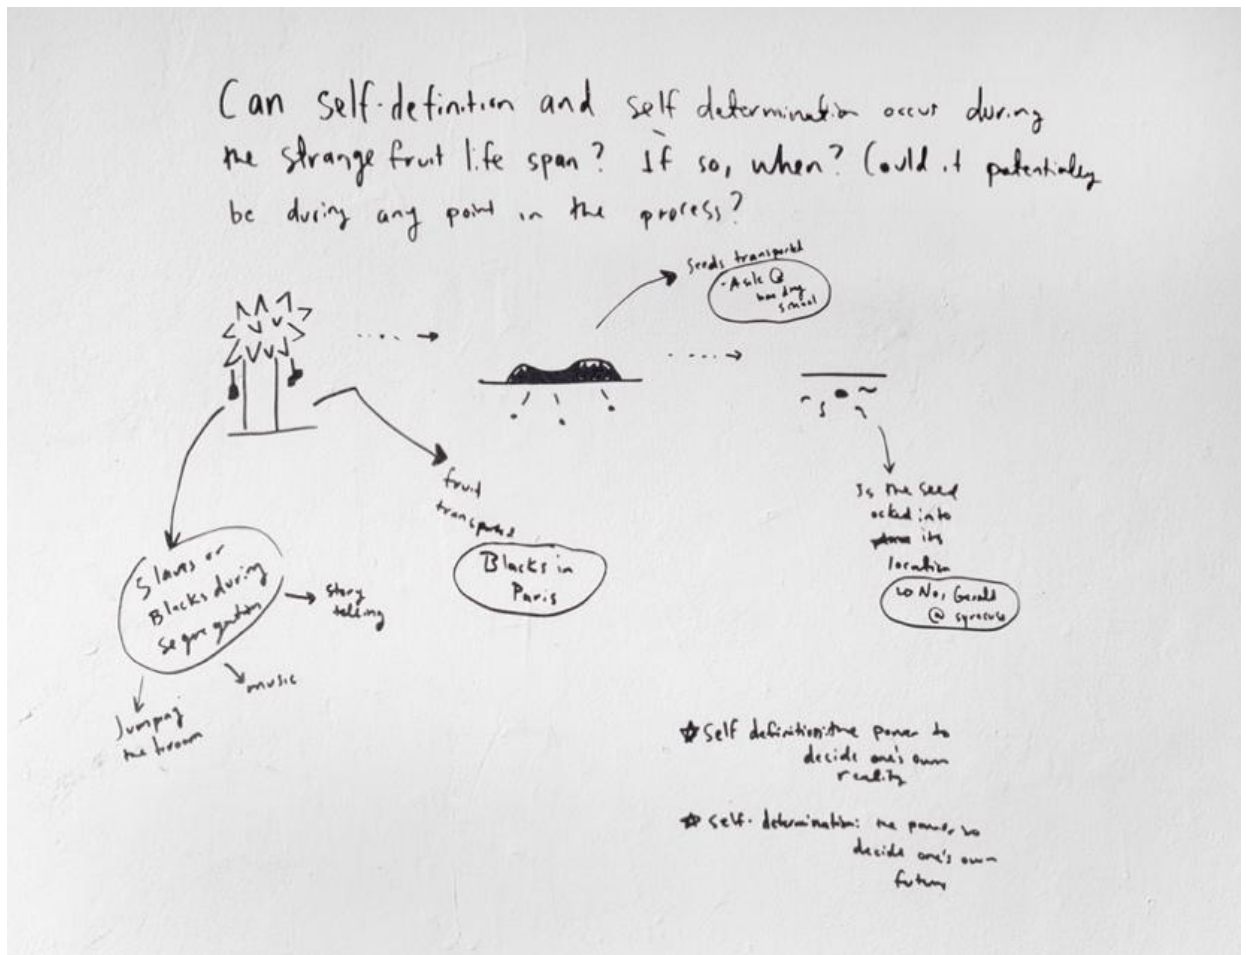 Can self-definition and self determination occur during
the strange fruit life span? If so, when? Could it potentially
be during any point in the process?
Seeds transported
@
school
fruit
transported
Blacks in
Paris
Slaves or
Blacks during
segregation
story
telling
music
Jumping
the broom
Is the seed
ocked into
its
location
No, Gerald
@ syracuse
☆ Self definition: the power to
decide one's own
reality
☆ Self-determination: the power to
decide one's own
future